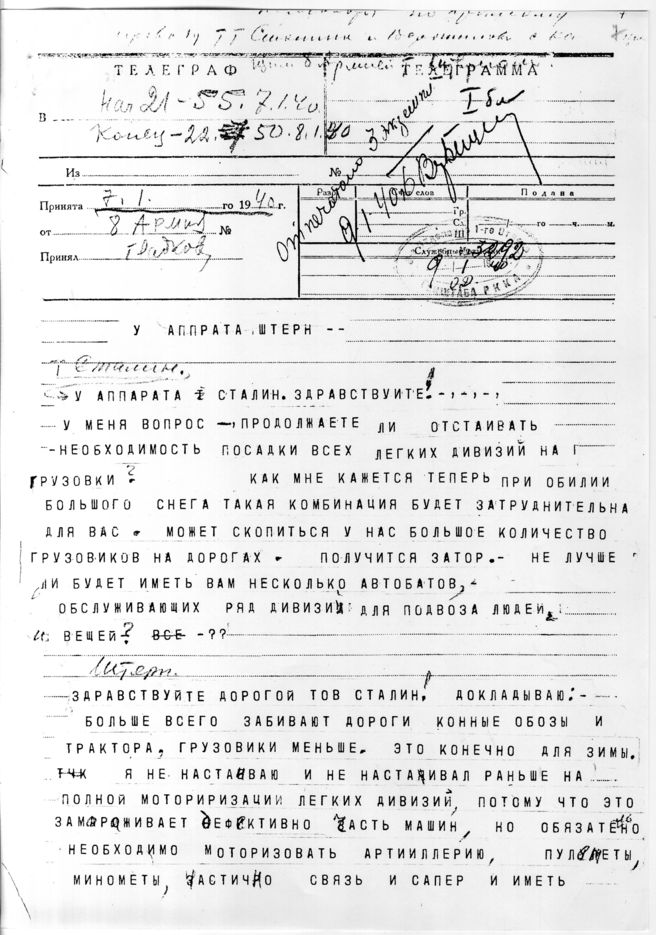 по прямому
проводу ТТ Сталина и Ворошилова с ко
ТЕЛЕГРАФ
ТЕЛЕГРАММА
8 Армией
В
Нач 21-55. 7.1.40
Конец-22. 50. 8.1.40
отпечатано 3 экземпл
Из
№
Принята 7.1. го 1940 г.
Разр.
слов
Подана
от 8 Армии №
Гр.
Сл.
го ч. м.
Принял Гладков
9 1 40
Служебн.
ШТАБА РККА
У АППРАТА ШТЕРН --
Т Сталин.
У АППАРАТА СТАЛИН. ЗДРАВСТВУЙТЕ! -,-,-,
У МЕНЯ ВОПРОС -, ПРОДОЛЖАЕТЕ ЛИ ОТСТАИВАТЬ
-НЕОБХОДИМОСТЬ ПОСАДКИ ВСЕХ ЛЕГКИХ ДИВИЗИЙ НА
ГРУЗОВКИ ? КАК МНЕ КАЖЕТСЯ ТЕПЕРЬ ПРИ ОБИЛИИ
БОЛЬШОГО СНЕГА ТАКАЯ КОМБИНАЦИЯ БУДЕТ ЗАТРУДНИТЕЛЬНА
ДЛЯ ВАС . МОЖЕТ СКОПИТЬСЯ У НАС БОЛЬШОЕ КОЛИЧЕСТВО
ГРУЗОВИКОВ НА ДОРОГАХ . ПОЛУЧИТСЯ ЗАТОР.- НЕ ЛУЧШЕ
ЛИ БУДЕТ ИМЕТЬ ВАМ НЕСКОЛЬКО АВТОБАТОВ,-
ОБСЛУЖИВАЮЩИХ РЯД ДИВИЗИЙ ДЛЯ ПОДВОЗА ЛЮДЕЙ
И ВЕЩЕЙ? ВСЕ -??
Штерн.
ЗДРАВСТВУЙТЕ ДОРОГОЙ ТОВ СТАЛИН! ДОКЛАДЫВАЮ:-
БОЛЬШЕ ВСЕГО ЗАБИВАЮТ ДОРОГИ КОННЫЕ ОБОЗЫ И
ТРАКТОРА, ГРУЗОВИКИ МЕНЬШЕ. ЭТО КОНЕЧНО ДЛЯ ЗИМЫ.
ТЧК Я НЕ НАСТАИВАЮ И НЕ НАСТАИВАЛ РАНЬШЕ НА
ПОЛНОЙ МОТОРИРИЗАЦИИ ЛЕГКИХ ДИВИЗИЙ, ПОТОМУ ЧТО ЭТО
ЗАМОРОЖИВАЕТ ДЕФЕКТИВНО ЧАСТЬ МАШИН, НО ОБЯЗАТЕНО
НЕОБХОДИМО МОТОРИЗОВАТЬ АРТИИЛЛЕРИЮ, ПУЛЕМЕТЫ,
МИНОМЕТЫ, ЧАСТИЧНО СВЯЗЬ И САПЕР И ИМЕТЬ